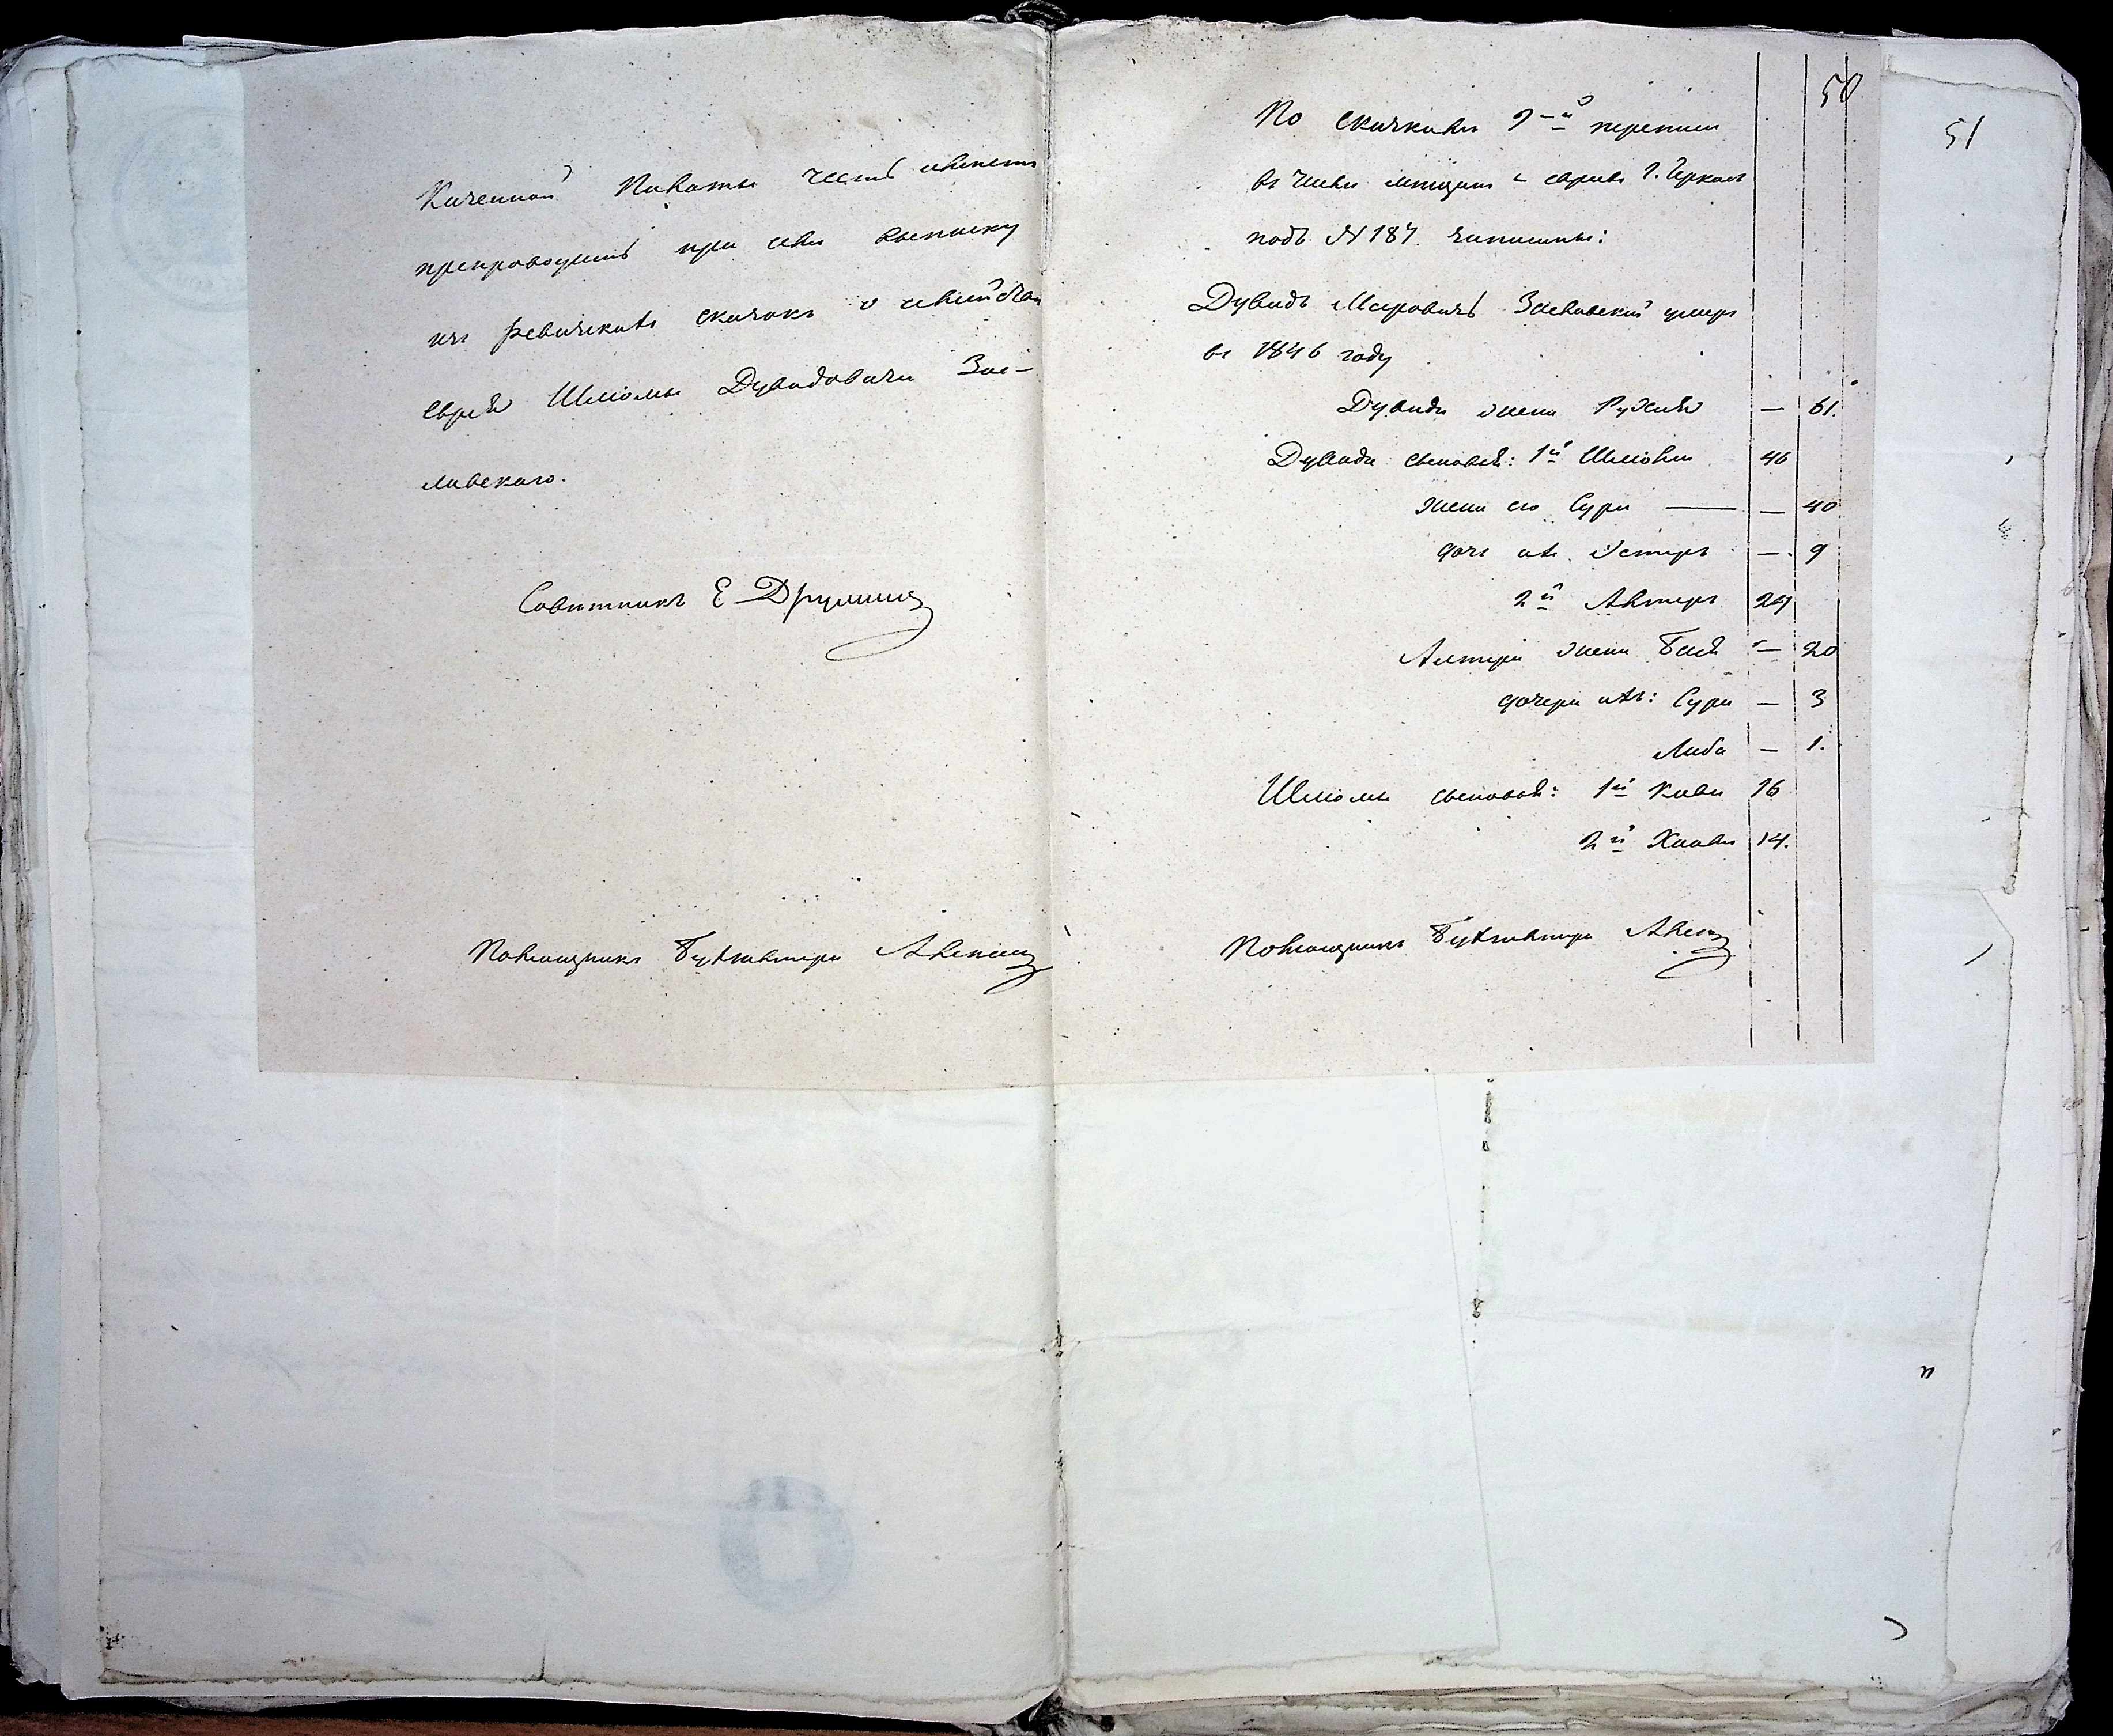 Казенной Палаты честь имѣетъ
препроводить при семъ выписку
изъ ревизскихъ сказокъ о семействѣ
еврея Шлиомы Дувидовича Зас-
лавскаго.
Совѣтникъ Е
Помощникъ Бухгалтера
50
51
По сказкамъ 9-й переписи
въ числѣ мѣщанъ евреевъ г. Черкасъ
подъ № 187 записаны:
Дувидъ Мееровичъ Заславскій умеръ
въ 1846 году
Дувида жена Рухля — 61.
Дувида сыновья: 1й Шлиома 46
жена его Сура — — 40
дочь ихъ Эстеръ — 9
2й Алтеръ 24
Алтера жена Бася — 20
дочери ихъ: Сура — 3
Либа — 1.
Шлиомы сыновья: 1й 16
2й 14.
Помощникъ Бухгалтера